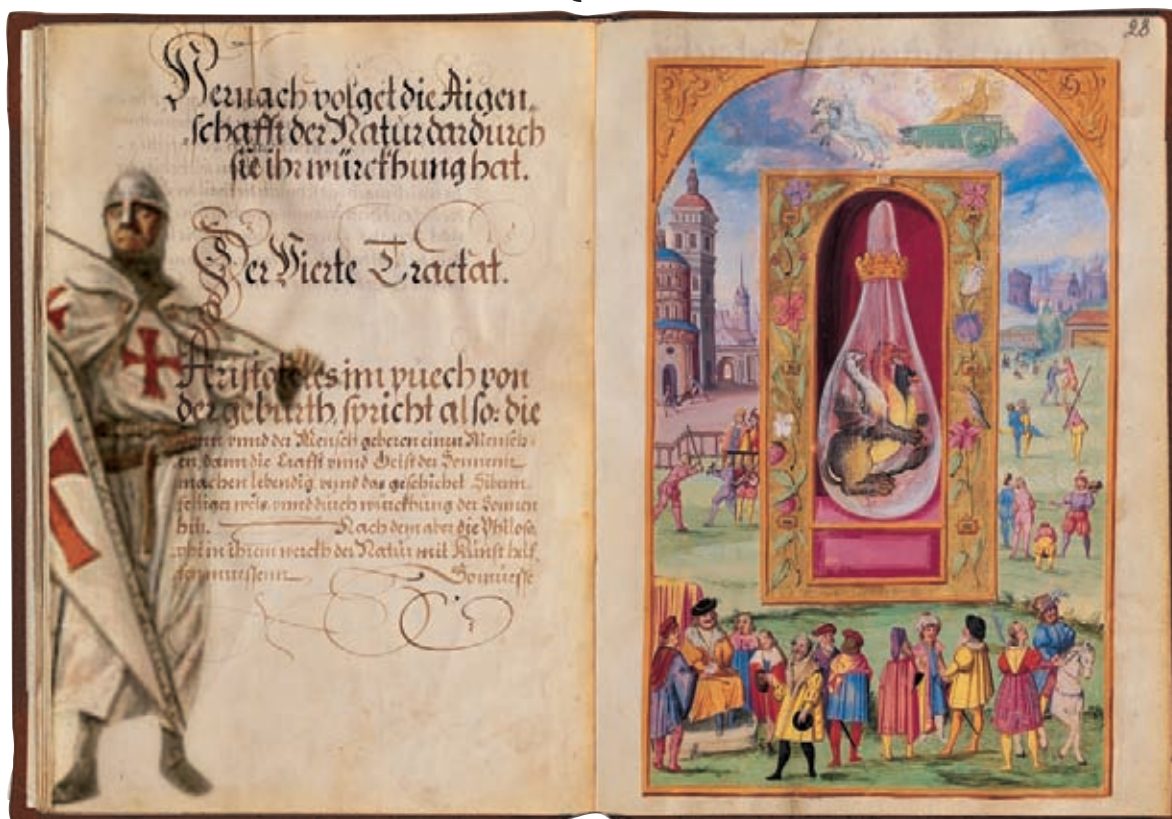 Hernach volget die Aigen„
schafft der Natur dardurch
sie ihr würckhung hat.
Der Vierte Tractat.
Aristoteles im puech von
der geburth, spricht also: die
vnnd der Mensch geberen einen Mensch„
en, dann die Crafft vnnd Geist der Sonnenn
machen lebendig, vnnd das geschichet Siben„
feltiger weis, vnnd durch würckhung der Sonnen
hitz. Nach dem aber die Philoso„
phi in ihrem werckh der Natur mit Kunst helf„
fen muessenn So muesse
28